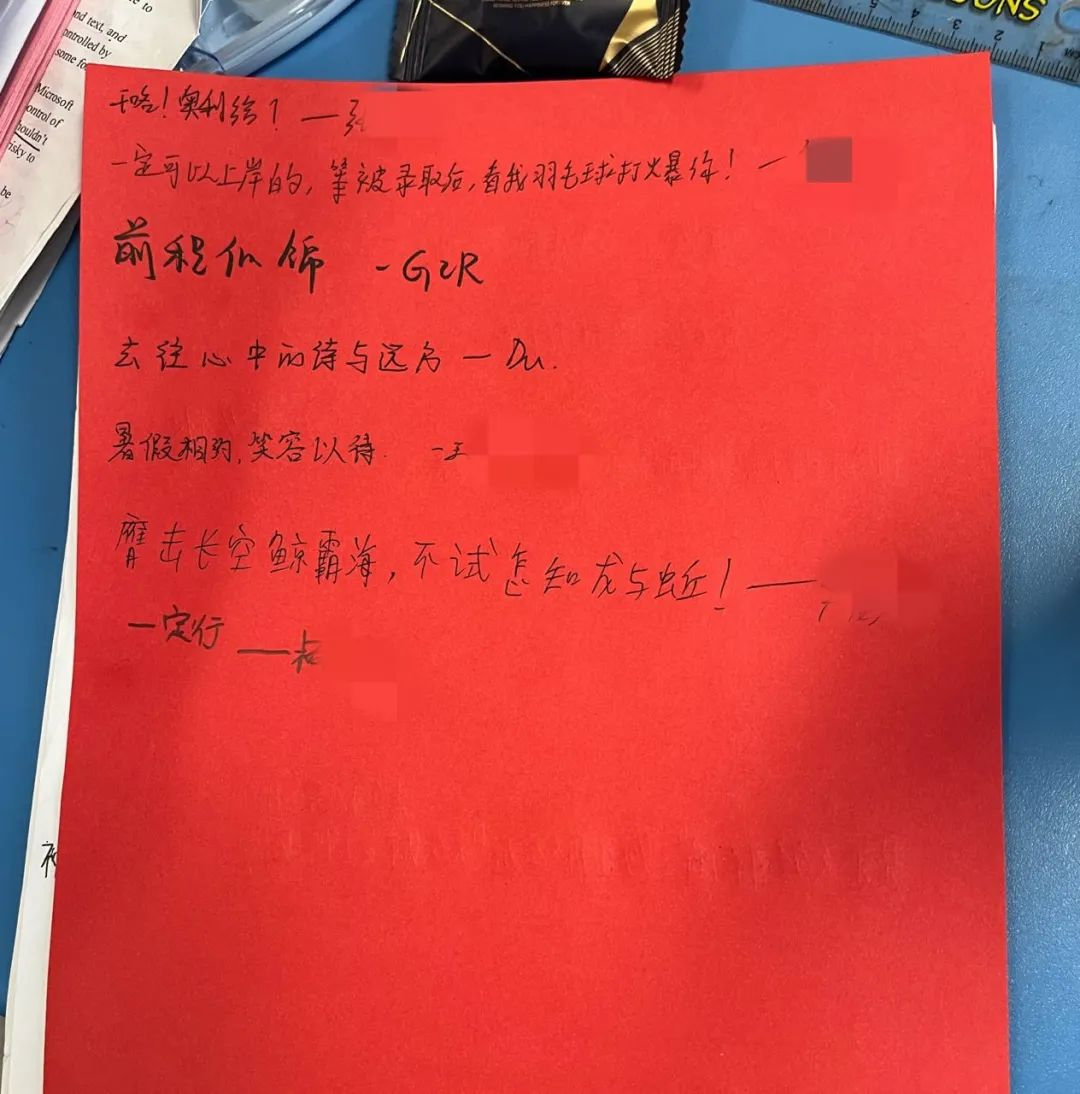 WISHING YOU HAPPINESS FOREVER
nd text, and
ontrolled by
some fo
Microsoft
ontrol of
houldn't
risky to
be
干咯！奥利给！—张
一定可以上岸的，等被录取后，看我羽毛球打火暴你！—
前程似锦 -GZR
去往心中的诗与远方 — Du.
暑假相约，笑容以待. -王
鹰击长空鲸霸海，不试怎知龙与蚯！——
一定行 ——